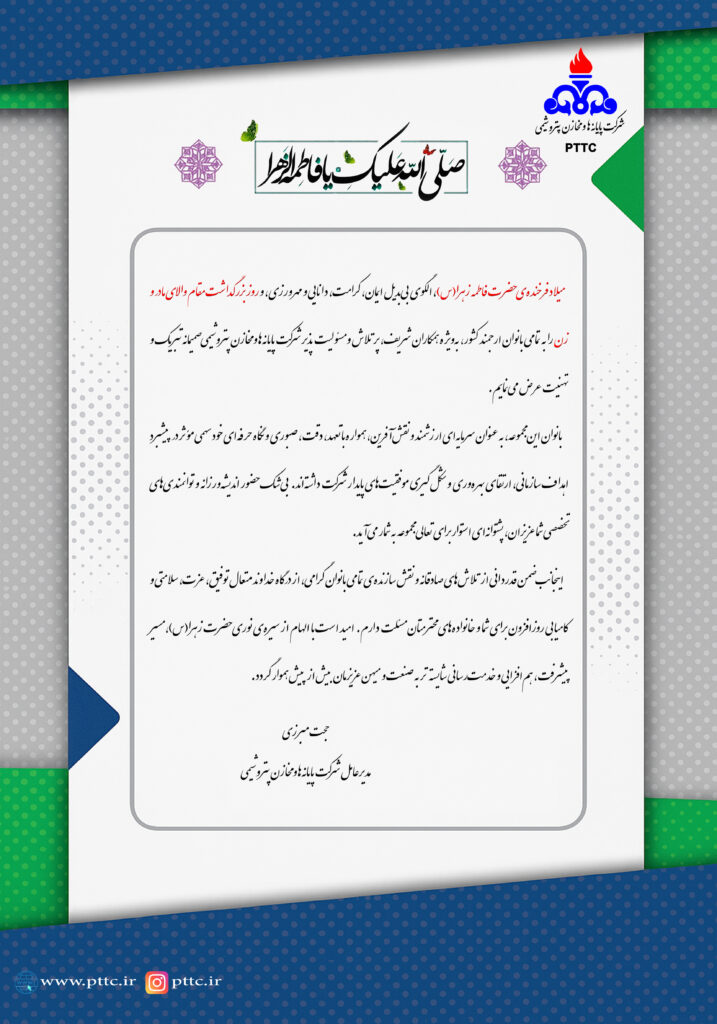 شرکت پایانه ها و مخازن پتروشیمی
PTTC
صلّی الله علیک یا فاطمه الزهرا
میلاد فرخنده‌ی حضرت فاطمه زهرا(س)، الگوی بی‌بدیل ایمان، کرامت، دانایی و مهرورزی، و روز بزرگداشت مقام والای مادر و
زن را به تمامی بانوان ارجمند کشور، به‌ویژه همکاران شریف، پرتلاش و مسئولیت پذیر شرکت پایانه ها و مخازن پتروشیمی صمیمانه تبریک و
تهنیت عرض می نمایم.
بانوان این مجموعه، به عنوان سرمایه ای ارزشمند و نقش آفرین، همواره با تعهد، دقت، صبوری و نگاه حرفه ای خود سهمی مؤثر در پیشبرد
اهداف سازمانی، ارتقای بهره‌وری و شکل گیری موفقیت های پایدار شرکت داشته اند. بی شک حضور اندیشه ورزانه و توانمندی های
تخصصی شما عزیزان، پشتوانه ای استوار برای تعالی مجموعه به شمار می آید.
اینجانب ضمن قدردانی از تلاش های صادقانه و نقش سازنده ی تمامی بانوان گرامی، از درگاه خداوند متعال توفیق، عزت، سلامتی و
کامیابی روزافزون برای شما و خانواده های محترمتان مسئلت دارم. امید است با الهام از سیره‌ی نوری حضرت زهرا(س)، مسیر
پیشرفت، هم افزایی و خدمت رسانی شایسته تر به صنعت و میهن عزیزمان بیش از پیش هموار گردد.
حجت میرزی
مدیرعامل شرکت پایانه ها و مخازن پتروشیمی
www.pttc.ir pttc.ir